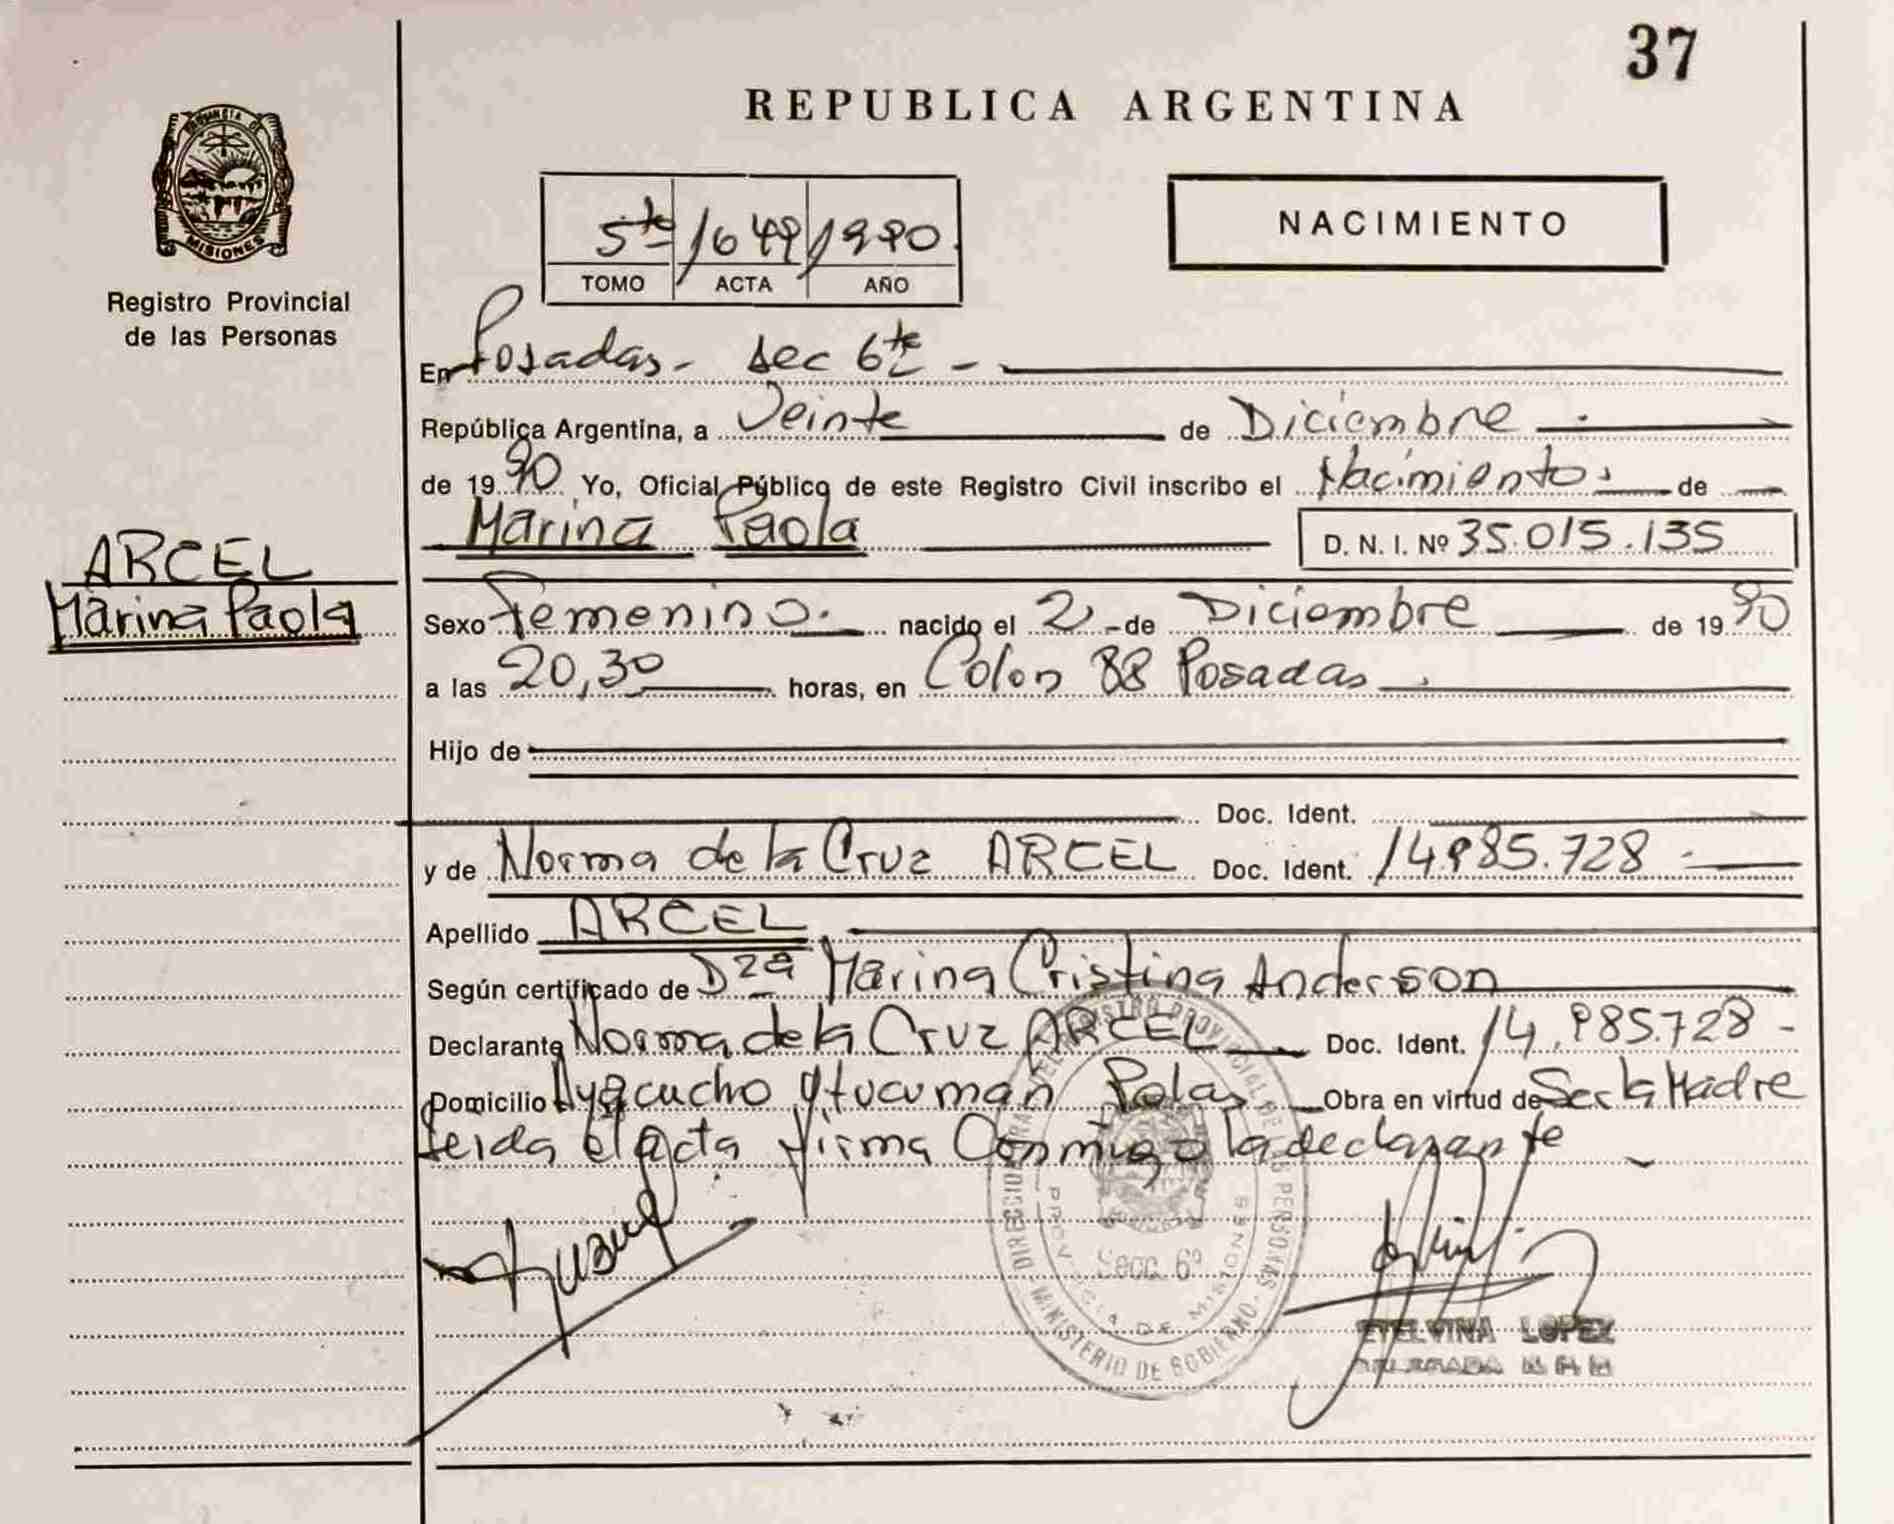 37
REPUBLICA ARGENTINA
PROVINCIA DE
MISIONES
Registro Provincial
de las Personas
5te 1649 1990
TOMO ACTA AÑO
NACIMIENTO
En Posadas - sec 6te -
República Argentina, a Veinte de Diciembre
de 1990 Yo, Oficial Público de este Registro Civil inscribo el Nacimiento de
Marina Paola D. N. I. Nº 35.015.135
ARCEL
Marina Paola
Sexo Femenino nacido el 2 de Diciembre de 1990
a las 20,30 horas, en Colon 88 Posadas
Hijo de
Doc. Ident.
y de Norma de la Cruz ARCEL Doc. Ident. 14.985.728
Apellido ARCEL
Según certificado de Dra Marina Cristina Anderson
Declarante Norma de la Cruz ARCEL Doc. Ident. 14.985.728 -
Domicilio Ayacucho y tucuman Pdas Obra en virtud de Ser la Madre
leida el acta firma Conmigo la declarante
DIRECCION GRAL DEL REGISTRO PROVINCIAL DE LAS PERSONAS
MINISTERIO DE GOBIERNO
PROVINCIA DE MISIONES
Secc. 6º
ETELVINA LOPEZ
DELEGADA